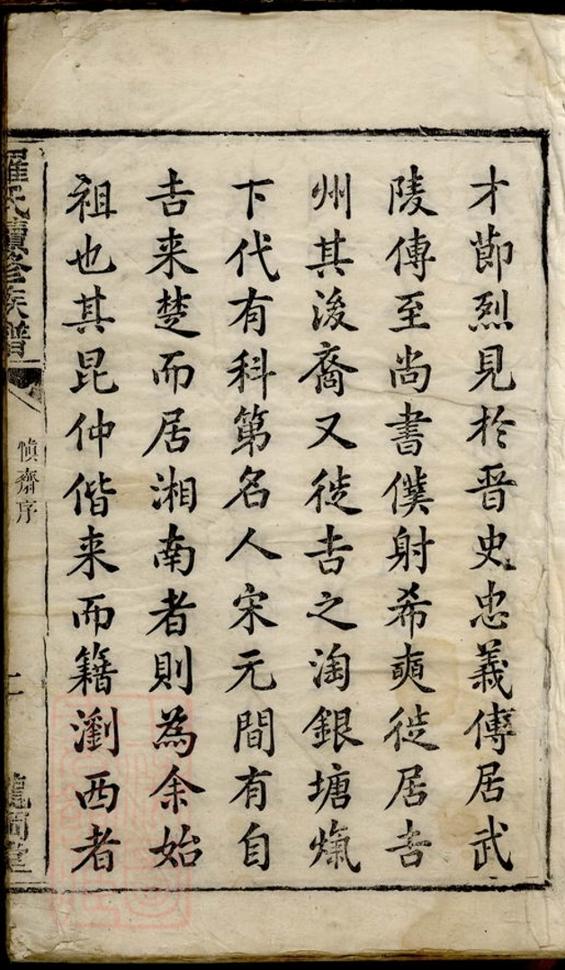 才節烈見於晋史忠義傳居武
陵傳至尚書僕射希奭徙居吉
州其後裔又徙吉之淘銀塘𤍠
下代有科第名人宋元間有自
吉来楚而居湘南者則為余始
祖也其昆仲偕来而籍瀏西者
羅氏續修族譜
慎齋序
二